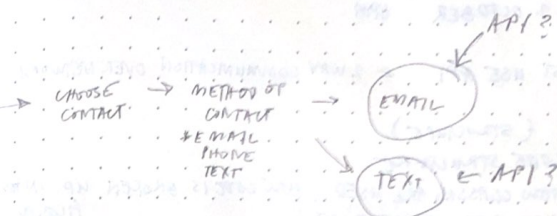 API?
CHOOSE
CONTACT
METHOD OF
CONTACT
*EMAIL
PHONE
TEXT
EMAIL
TEXT
API?